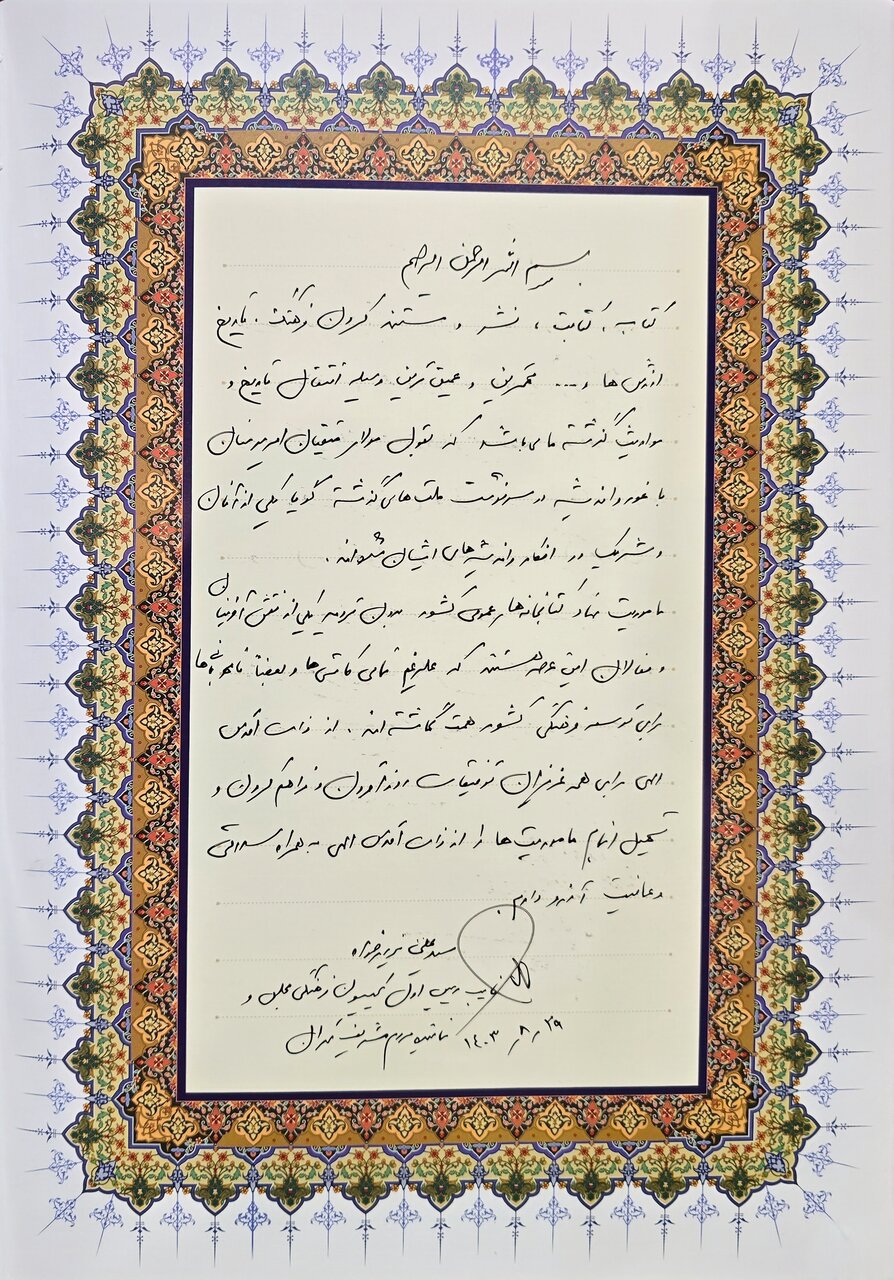 بسم الله الرحمن الرحیم
کتاب، کتابت، نشر و مستند کردن فرهنگ، تاریخ
ارزش ها و ... مهمترین و عمیق ترین وسیله انتقال تاریخ و
مواریث گذشته ما می باشد که بقول مولای متقیان امیرمومنان
با غور و اندیشه در سرنوشت ملت های گذشته گویا یکی از آنان
و شریک در افکار و اندیشه های ایشان شده اند.
ماموریت نهاد کتابخانه های عمومی کشور بدون تردید یکی از نقش آفرینان
و فعالان این عرصه هستند که علیرغم تمامی کاستی ها و بعضاً
برای توسعه فرهنگی کشور همت گماشته اند. از ذات اقدس
الهی برای همه عزیزان توفیقات روزافزون و فراهم کردن و
تسهیل انجام ماموریت ها را از ذات اقدس الهی به همراه سلامتی
و عافیت آرزو دارم.
سید علی یزدیخواه
نایب رییس اول کمیسیون فرهنگی مجلس و
نماینده مردم شریف تهران ۱۴۰۳/۸/۲۹